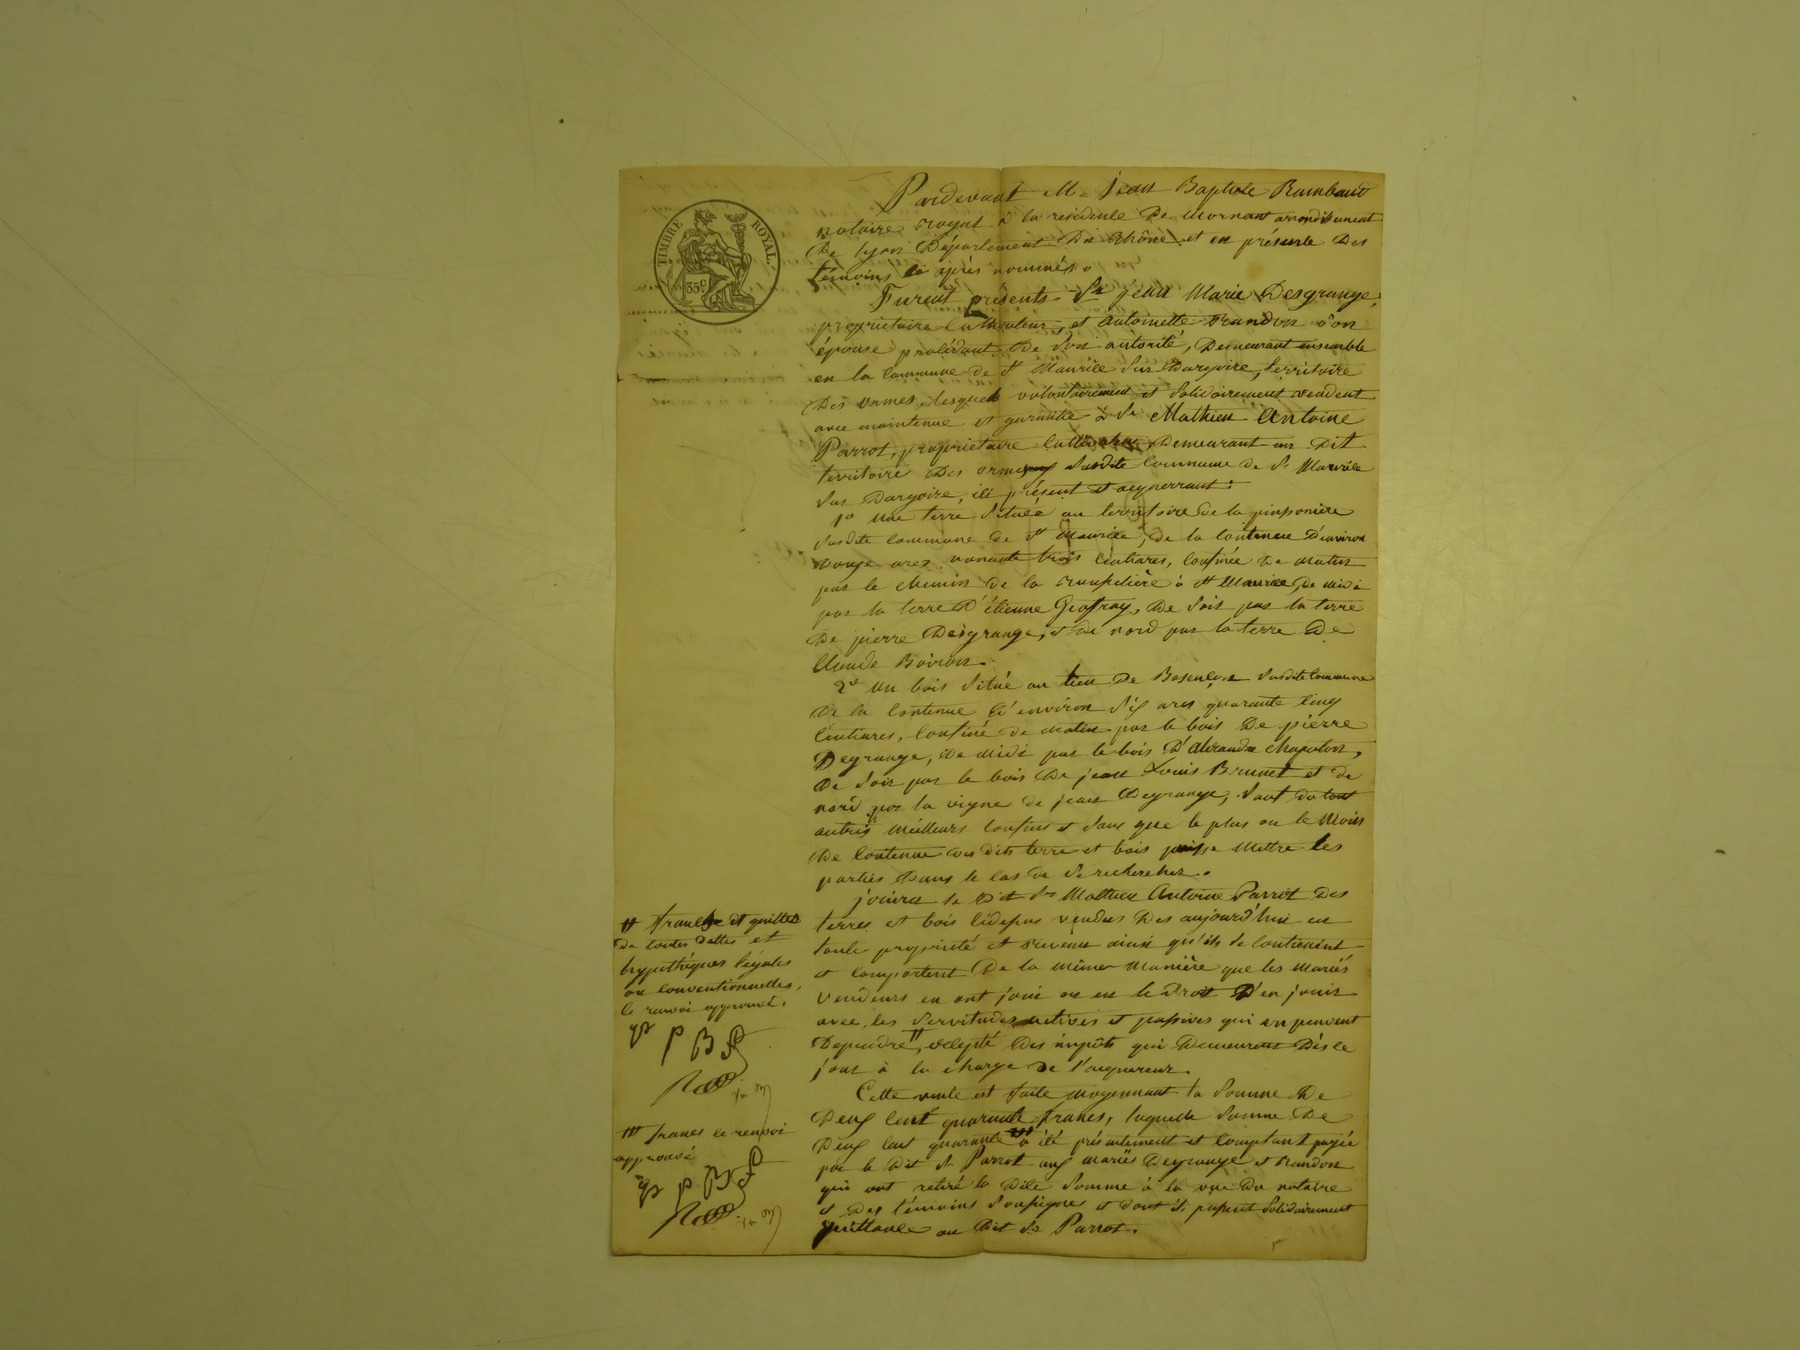 TIMBRE ROYAL.
35c
Pardevant Me jean Baptiste Rambaud
notaire royal à la residence De Mornant arrondissement
De lyon Département Du Rhône et en présence Des
témoins ci après nommés.
Furent présents Sr jean Marie Desgrange,
proprietaire Cultivateur, et Antoinette Brandon Son
épouse procédant De Son autorité, Demeurant ensemble
en la Commune de St Maurice Sur Dargoire, territoire
Des ormes, lesquels volontairement et Solidairement vendent
avec maintenue et garantie à Sr Mathieu Antoine
Parrot, proprietaire Cultivateur Demeurant au Dit
territoire Des ormes Susdite Commune de St Maurice
Sur Dargoire, ici présent et acquerrant:
1o Une terre Située au territoire De la pinponière
Susdite Commune de St Maurice, De la Contenue D'environ
Douze ares nonante trois Centiares, Confinée De matin
par le chemin de la Roussilière à St Maurice, De midi
par la terre D'étienne Geoffray, De Soir par la terre
De pierre Desgrange, et De nord par la terre De
Claude Boiron.
2o Un bois Situé au lieu De Susdite Commune
De la Contenue D'environ Six ares quarante Cinq
Centiares, Confiné De matin par le bois De pierre
Degrange, De midi par le bois D'Alexandre Chapoton,
De Soir par le bois De jean Louis Brunet et De
nord par la vigne de jean Degrange, Sauf Du tout
autres meilleurs Confins et Sans que le plus ou le moins
De Contenue Des Dits terre et bois puisse Mettre les
parties Dans le Cas De Se rechercher.
jouira le Dit Sr Mathieu Antoine Parrot Des
terres et bois Cidessus vendus Dès aujourd'hui en
toute propriété et revenus ainsi qu'ils Se Contiennent
et Comportent De la même manière que les mariés
vendeurs en ont joui ou eu le Droit D'en jouir
avec les Servitudes actives et passives qui en peuvent
Dependre, # excepté Des impôts qui Demeurent Dès ce
jour à la charge De l'acquereur.
Cette vente est faite moyennant la Somme De
Deux Cent quarante francs, laquelle Somme De
Deux Cent quarante a été présentement et Comptant payée
par le Dit Sr Parrot aux mariés Degrange et Brandon
qui ont retiré la Dite Somme à la vue Du notaire
et Des témoins Soussignés et Dont ils passent Solidairement
quittance au Dit Sr Parrot.
# franche et quitte
De toutes Dettes et
hypothèques légales
ou Conventionnelles,
le renvoi approuvé.
P B
## francs le renvoi
approuvé
P B